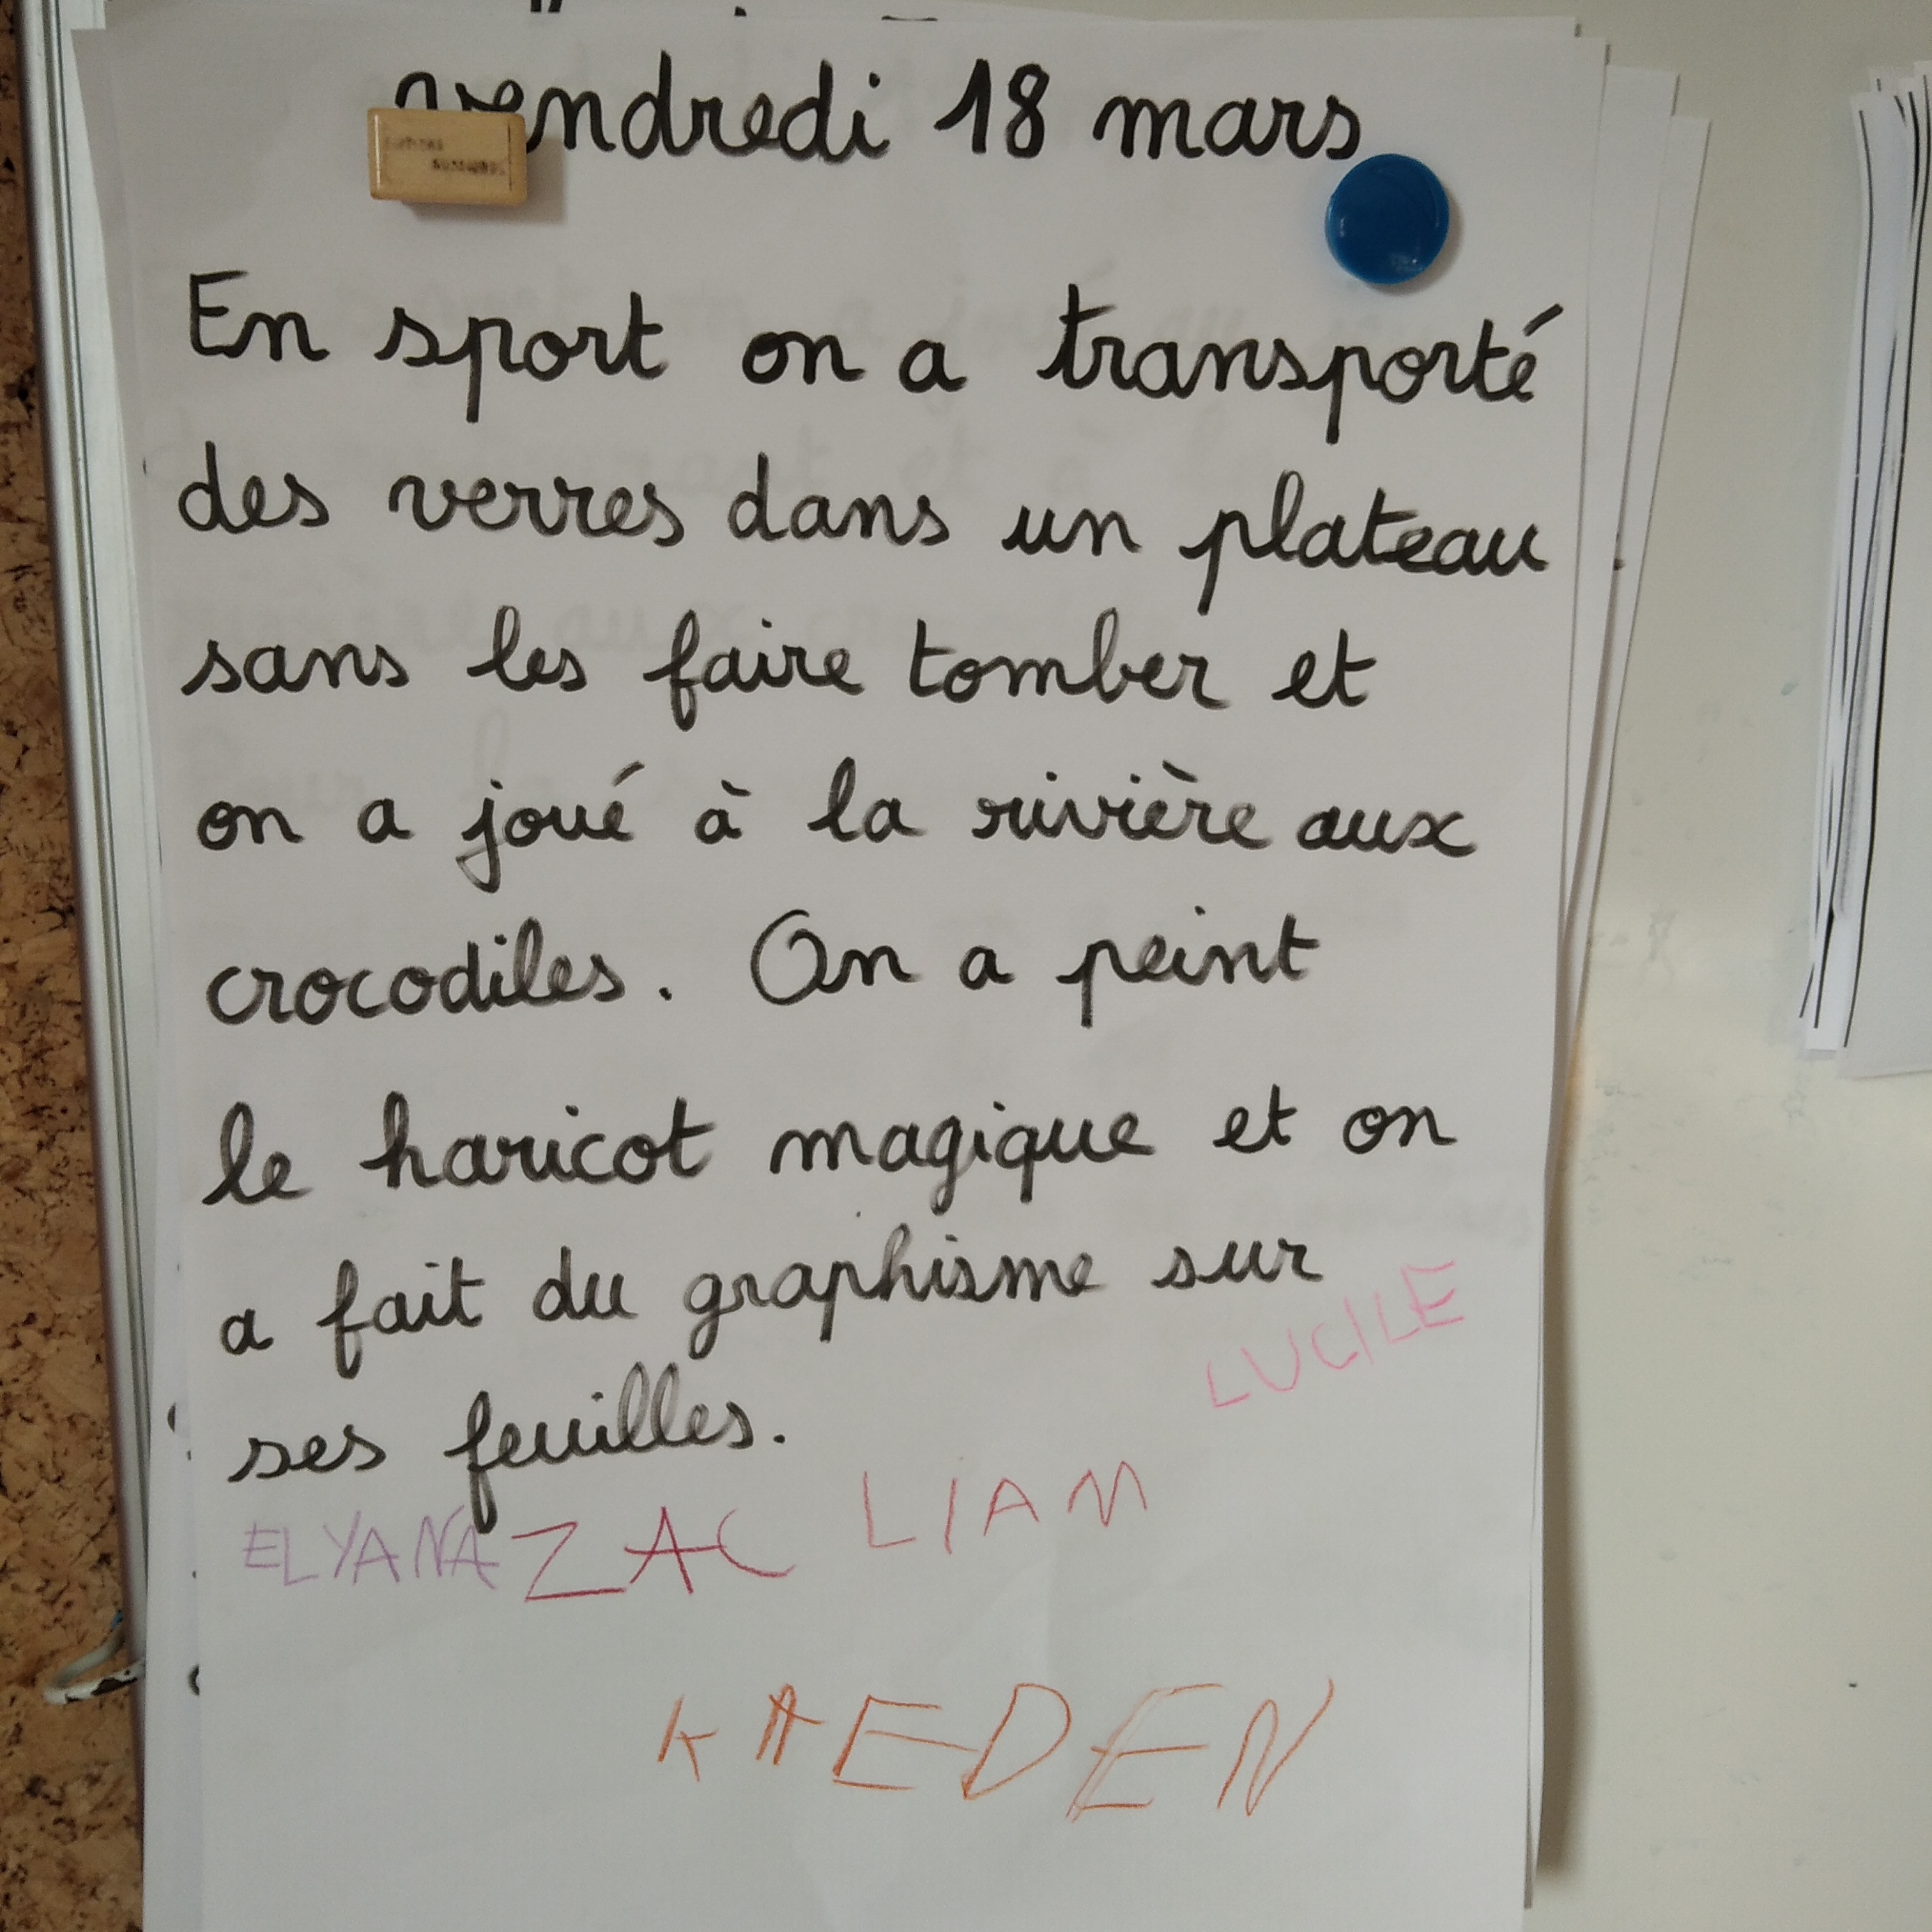 vendredi 18 mars
En sport on a transporté
des verres dans un plateau
sans les faire tomber et
on a joué à la rivière aux
crocodiles. On a peint
le haricot magique et on
a fait du graphisme sur
ses feuilles.
LUCILE
ELYANA ZAC LIAM
KAEDEN